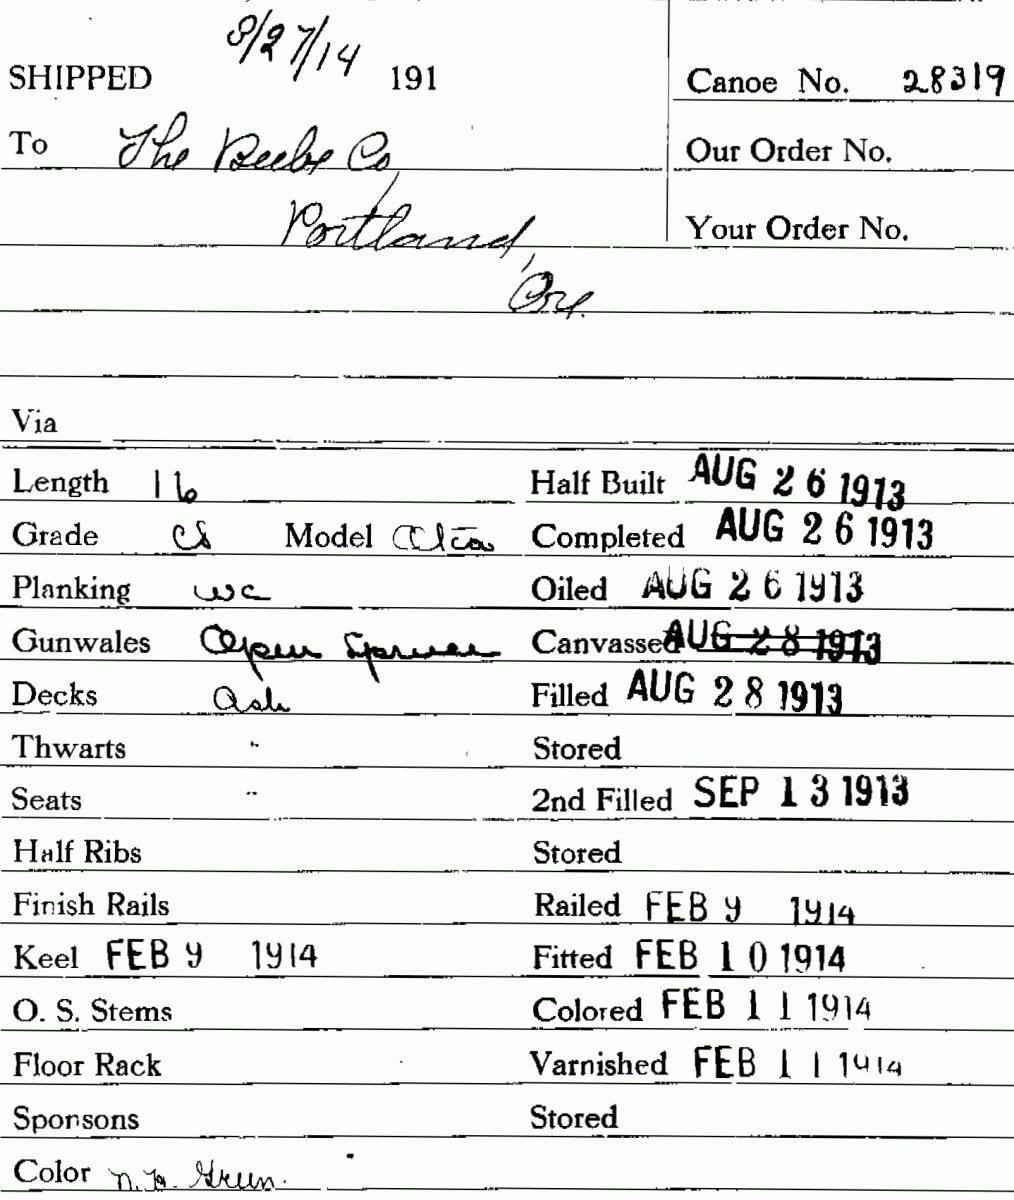 SHIPPED 8/27/14 191
Canoe No. 28319
To The Beebe Co,
Our Order No.
Portland,
Your Order No.
Ore.
Via
Length 16 Half Built AUG 26 1913
Grade CS Model Completed AUG 26 1913
Planking wc Oiled AUG 26 1913
Gunwales Open Spruce Canvassed AUG 28 1913
Decks Ash Filled AUG 28 1913
Thwarts " Stored
Seats " 2nd Filled SEP 13 1913
Half Ribs Stored
Finish Rails Railed FEB 9 1914
Keel FEB 9 1914 Fitted FEB 10 1914
O. S. Stems Colored FEB 11 1914
Floor Rack Varnished FEB 11 1914
Sponsons Stored
Color Green.